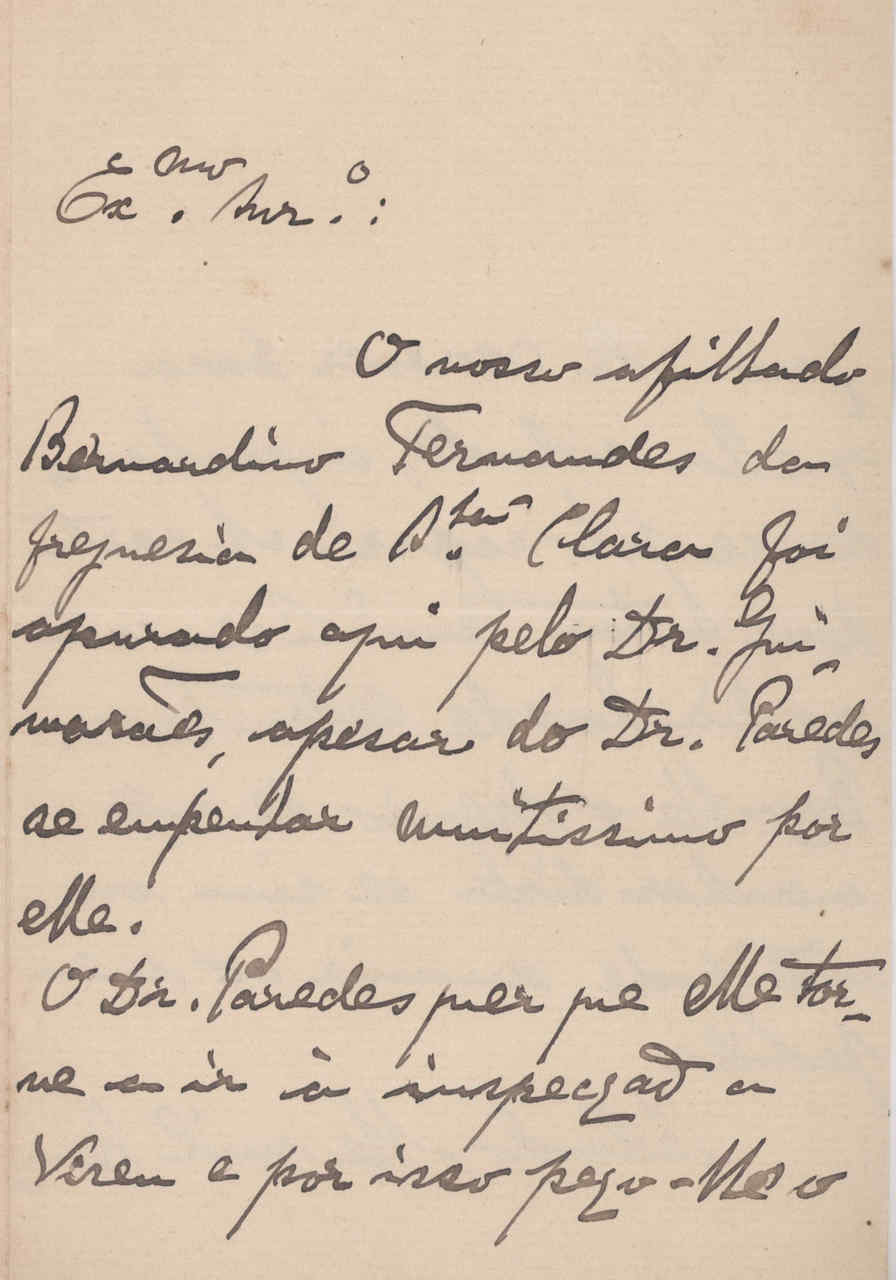 Ex.mo Snr.o:
O nosso afilhado
Bernardino Fernandes da
freguesia de S.ta Clara foi
apurado aqui pelo Dr. Gui-
marães, apesar do Dr. Paredes
se empenhar muitissimo por
elle.
O Dr. Paredes quer que elle tor-
ne a ir á inspecção a
Vizeu e por isso peço-lhe o